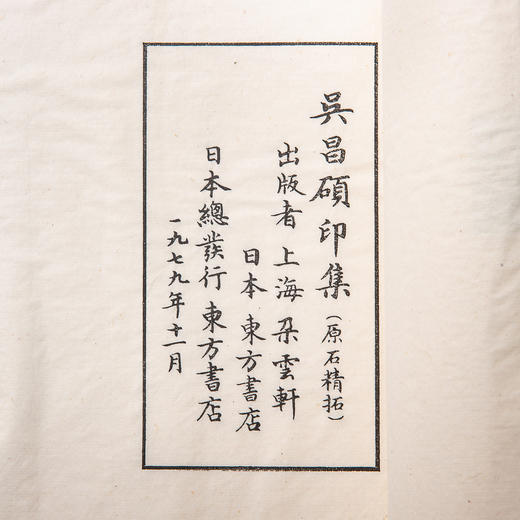 吳昌碩印集（原石精拓）
出版者 上海 朵雲軒
日本 東方書店
日本總發行 東方書店
一九七九年十一月